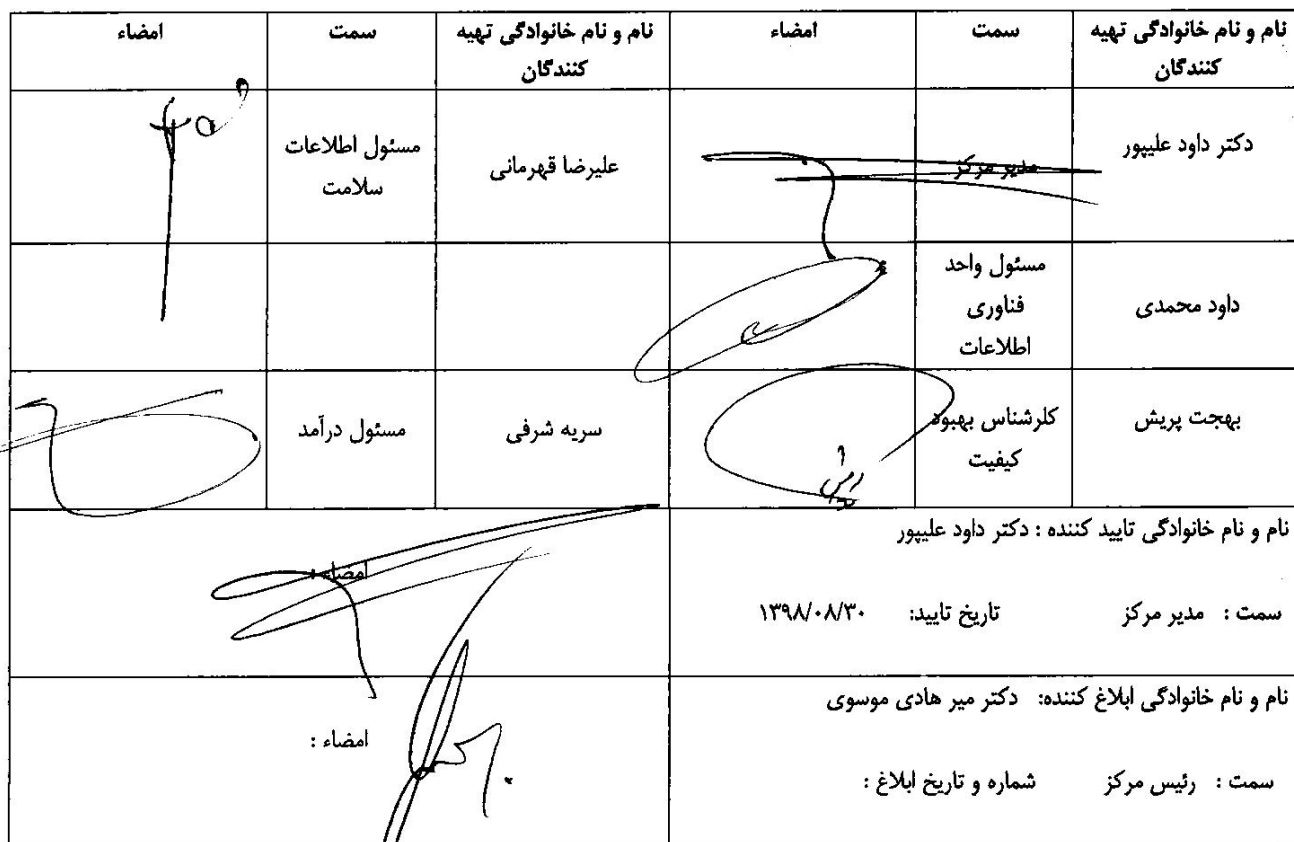 نام و نام خانوادگی تهیه کنندگان
سمت
امضاء
نام و نام خانوادگی تهیه کنندگان
سمت
امضاء
دکتر داود علیپور
مدیر مرکز
علیرضا قهرمانی
مسئول اطلاعات
سلامت
داود محمدی
مسئول واحد
فناوری
اطلاعات
بهجت پریش
کلرشناس بهبود
کیفیت
سریه شرفی
مسئول درآمد
نام و نام خانوادگی تایید کننده : دکتر داود علیپور
امضاء :
سمت : مدیر مرکز تاریخ تایید: ۱۳۹۸/۰۸/۳۰
نام و نام خانوادگی ابلاغ کننده: دکتر میر هادی موسوی
امضاء :
سمت : رئیس مرکز شماره و تاریخ ابلاغ :